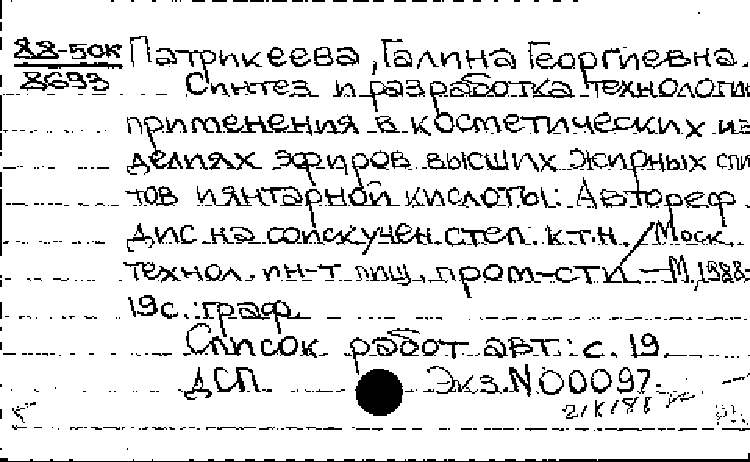 88-50к Патрикеева, Галина Георгиевна.
8693 Синтез и разработка технологии
применения в косметических из
делиях эфиров высших жирных спи
тов и янтарной кислоты: Автореф.
дис. на соиск. учен. степ. к.т.н. / Моск.
технол. ин-т пищ. пром-сти. — М., 1988.-
19 с.: граф.
Список работ авт.: с. 19.
ДСП Экз. N 00097.